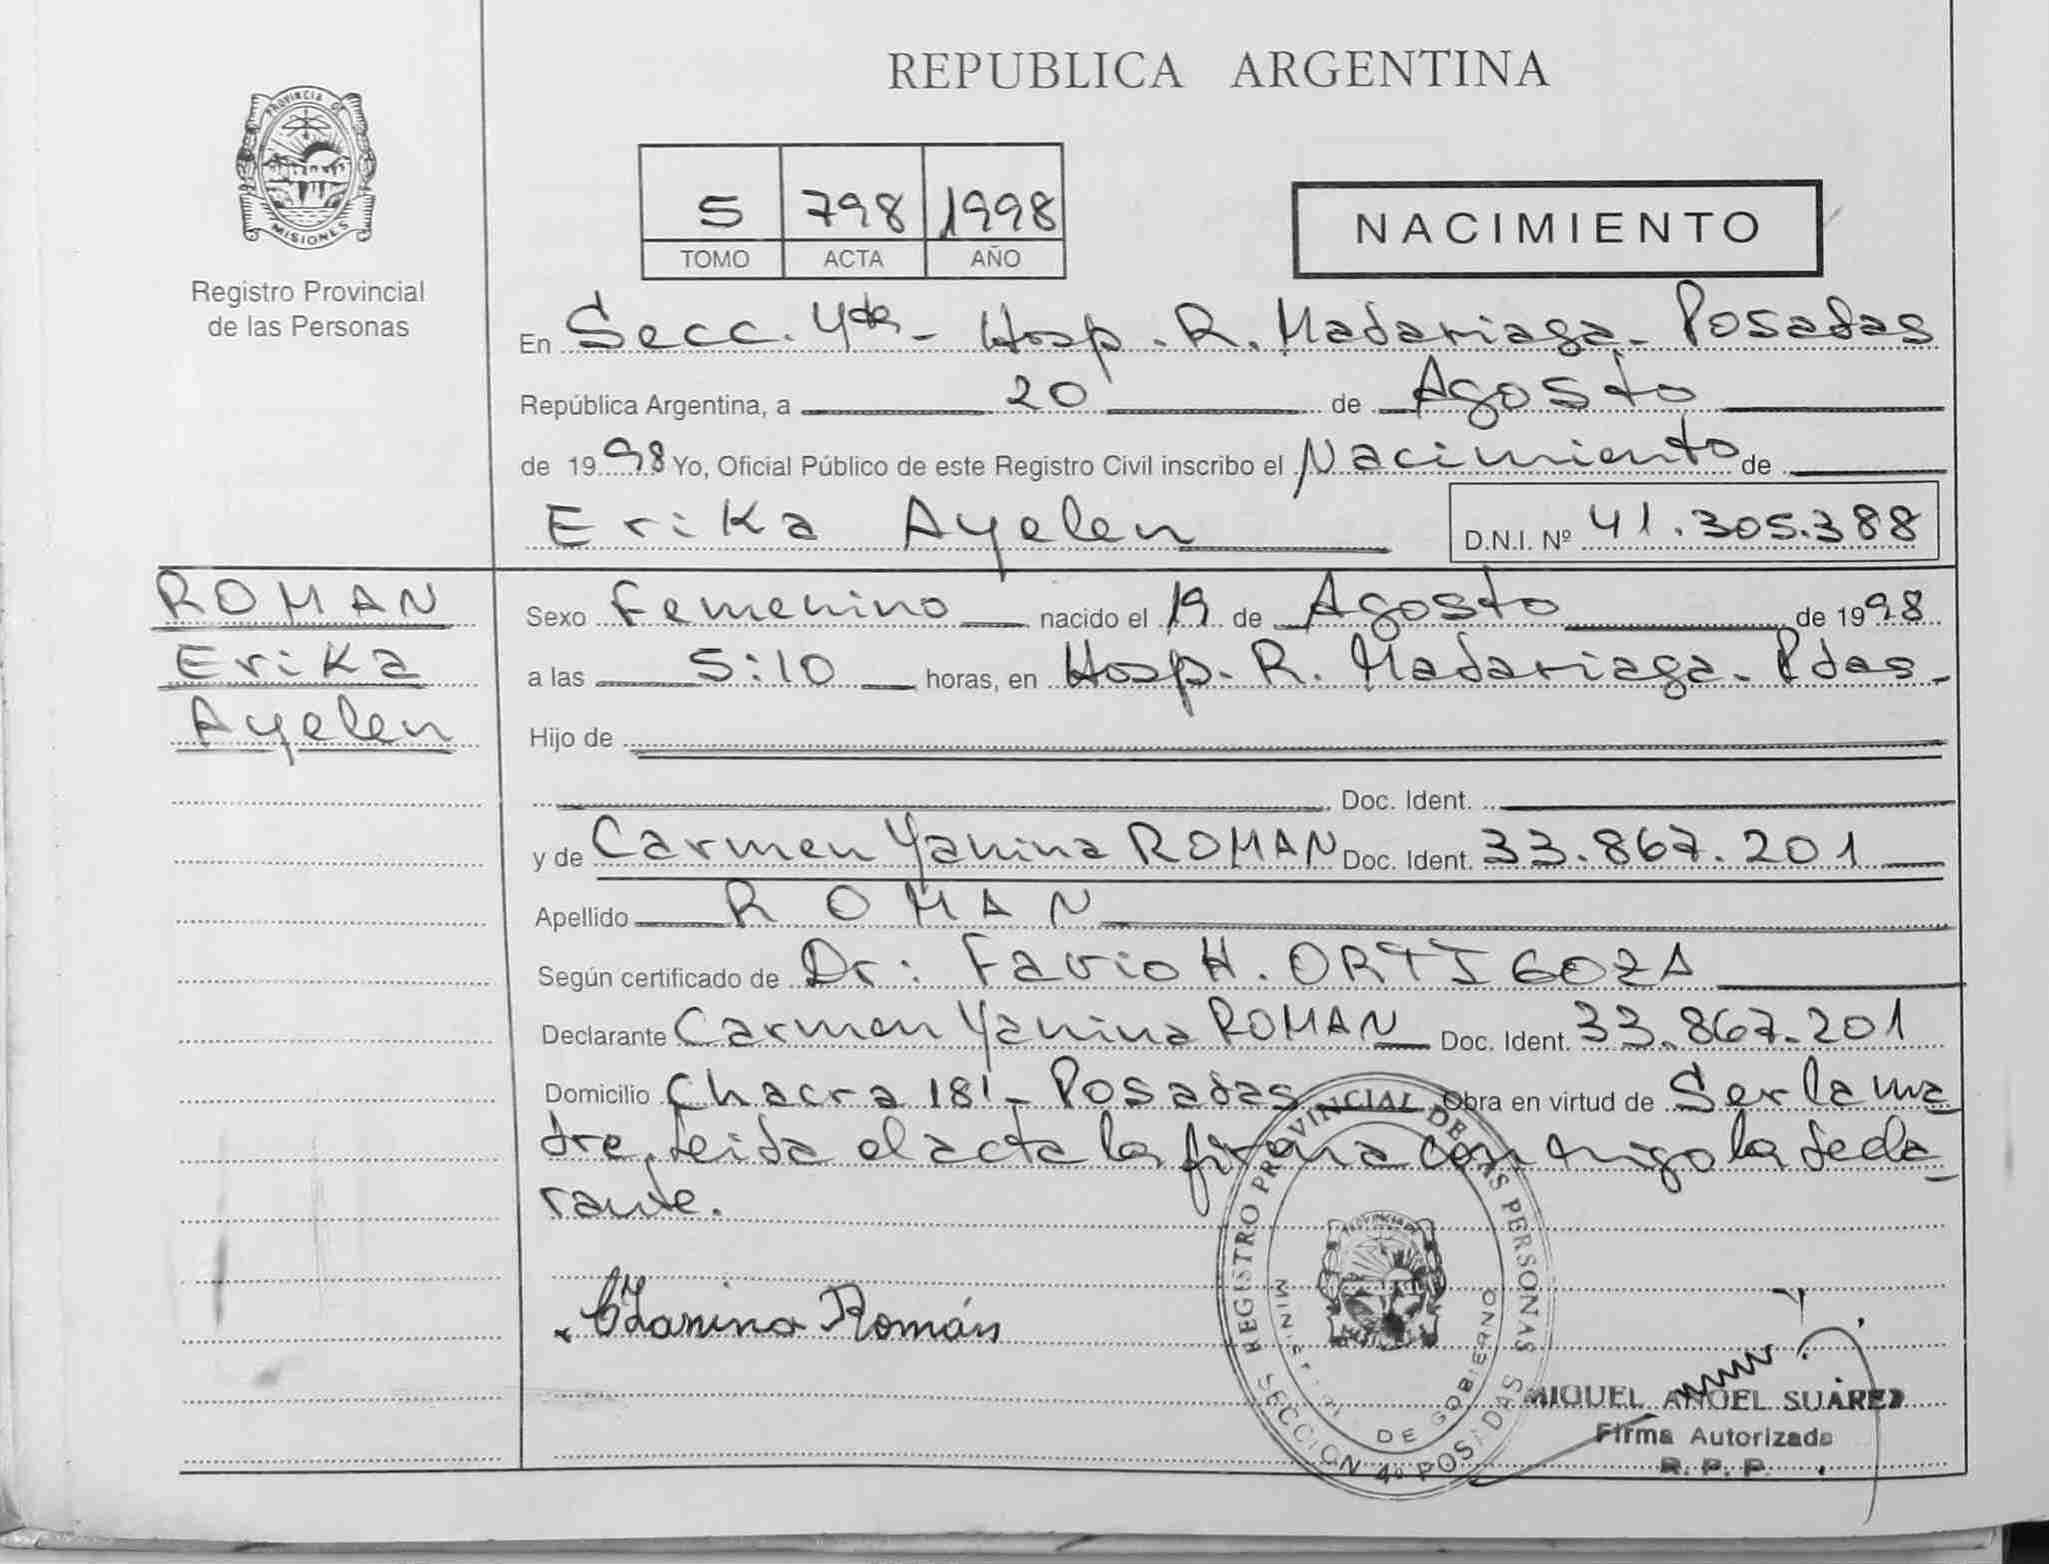 REPUBLICA ARGENTINA
PROVINCIA DE
MISIONES
Registro Provincial
de las Personas
5 798 1998
TOMO ACTA AÑO
NACIMIENTO
En Secc. 4ta - Hosp. R. Madariaga - Posadas
República Argentina, a 20 de Agosto
de 1998 Yo, Oficial Público de este Registro Civil inscribo el Nacimiento de
Erika Ayelen D.N.I. Nº 41.305.388
ROMAN
Erika
Ayelen
Sexo Femenino nacido el 19 de Agosto de 1998
a las 5:10 horas, en Hosp. R. Madariaga - Pdas -
Hijo de
Doc. Ident.
y de Carmen Yanina ROMAN Doc. Ident. 33.867.201
Apellido ROMAN
Según certificado de Dr: Favio H. ORTIGOZA
Declarante Carmen Yanina ROMAN Doc. Ident. 33.867.201
Domicilio Chacra 181 - Posadas Obra en virtud de Ser la ma
dre, leida el acta la firma conmigo la decla
rante.
REGISTRO PROVINCIAL DE LAS PERSONAS
MINISTERIO DE GOBIERNO
SECCION 4º POSADAS
Yanina Román
MIGUEL ANGEL SUAREZ
Firma Autorizada
R. P. P.